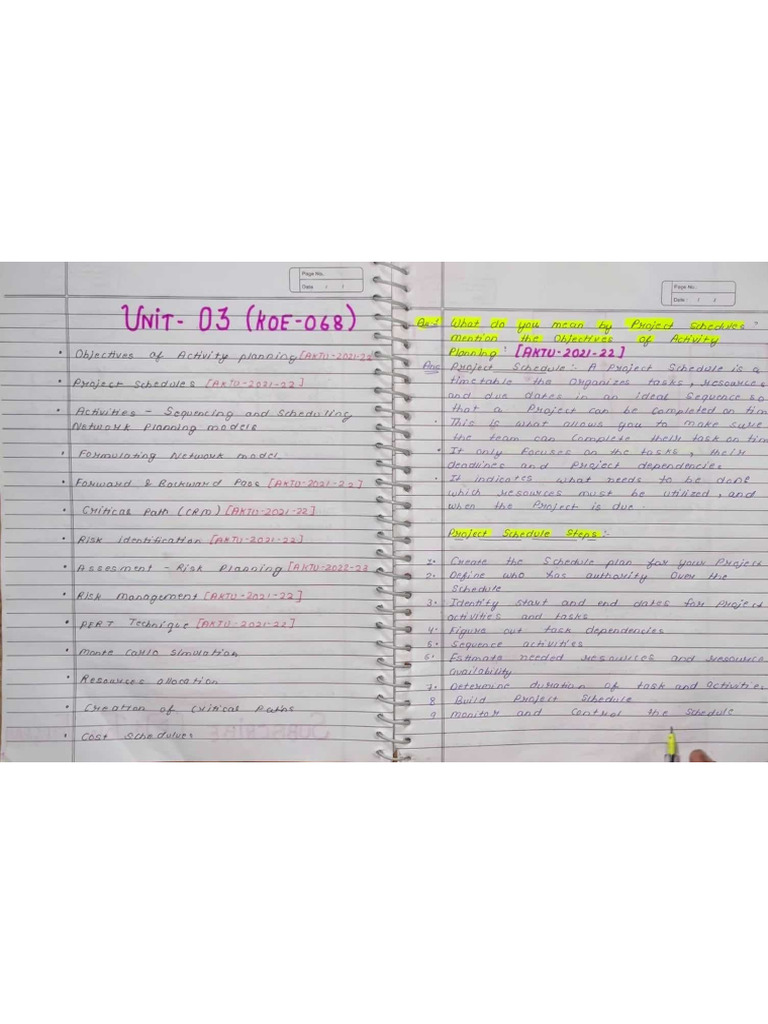 Page No.
Date / /
UNIT- 03 (KOE-068)
• Objectives of Activity planning [AKTU-2021-22
• Project Schedules [AKTU-2021-22]
• Activities - Sequencing and Scheduling
Network Planning models
• Formulating Network model.
• Forward & Backward Pass [AKTU-2021-22]
• Critical Path (CRM) [AKTU-2021-22]
• Risk identification [AKTU-2021-22]
• Assesment - Risk Planning [AKTU-2022-23
• Risk Management [AKTU-2021-22]
• PERT Technique [AKTU-2021-22]
• Monte Carlo Simulation
• Resources allocation
• Creation of Critical Paths
• Cost Schedules
Page No.:
Date: / /
What do you mean by Project Schedules
mention the Objectives of Activity
Planning [AKTU-2021-22]
Ans Project Schedule:- A Project Schedule is a
timetable the Organizes tasks, resources
and due dates in an ideal Sequence so
that a Project can be Completed on tim
• This is what allows you to make sure
the team can Complete their task on tim
• It only focuses on the tasks, their
deadlines and Project dependencies
• It indicates what needs to be done
which resources must be utilized, and
when the Project is due.
Project Schedule Steps:-
1. Create the Schedule plan for your Project
2. Define who has authority Over the
Schedule
3. Identity start and end dates for Project
activities and tasks
4. Figure out task dependencies
5. Sequence activities
6. Estimate needed resources and resource
availability
7. Determine duration of task and activities
8 Build Project Schedule
9 Monitor and Control the Schedule
SUBSCRIBE